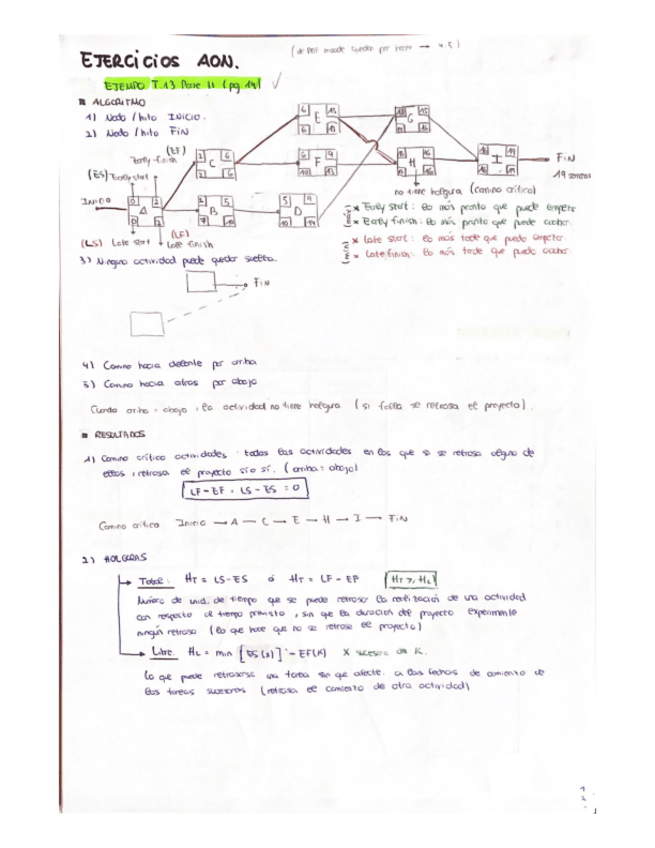 EJERCICIOS AON.
EJEMPLO T.13 Parte II (pg. 14)
ALGORITMO
1) Nodo / hito INICIO.
2) Nodo / hito FIN
(EF)
Early finish
(ES) Early start
INICIO
A
B
C
D
E
F
G
H
I
FIN
19 semanas
(LS) Late start
(LF)
Late finish
no tiene holgura (camino crítico)
(máx) × Early start: lo más pronto que puede empezar
× Early finish: lo más pronto que puede acabar
(min) × Late start: lo más tarde que puede empezar.
× Late finish: lo más tarde que puede acabar.
3) Ninguna actividad puede quedar suelta.
FIN
4) Camino hacia delante por arriba
5) Camino hacia atras por abajo
Cuando arriba = abajo, la actividad no tiene holgura (si falla se retrasa el proyecto).
RESULTADOS
1) Camino crítico actividades todas las actividades en las que si se retrasa alguna de
ellas, retrasa el proyecto sí o sí. (arriba = abajo)
LF - EF = LS - ES = 0
Camino crítico Inicio → A → C → E → H → I → FIN
2) HOLGURAS
Total: HT = LS - ES ó HT = LF - EF HT ≥ HL
Número de unid. de tiempo que se puede retrasar la realización de una actividad
con respecto al tiempo previsto, sin que la duración del proyecto experimente
ningún retraso (lo que hace que no se retrase el proyecto)
Libre: HL = min [ES(x)] - EF(K) X sucesora de K.
Lo que puede retrasarse una tarea sin que afecte a las fechas de comienzo de
las tareas sucesoras (retrasa el comienzo de otra actividad)